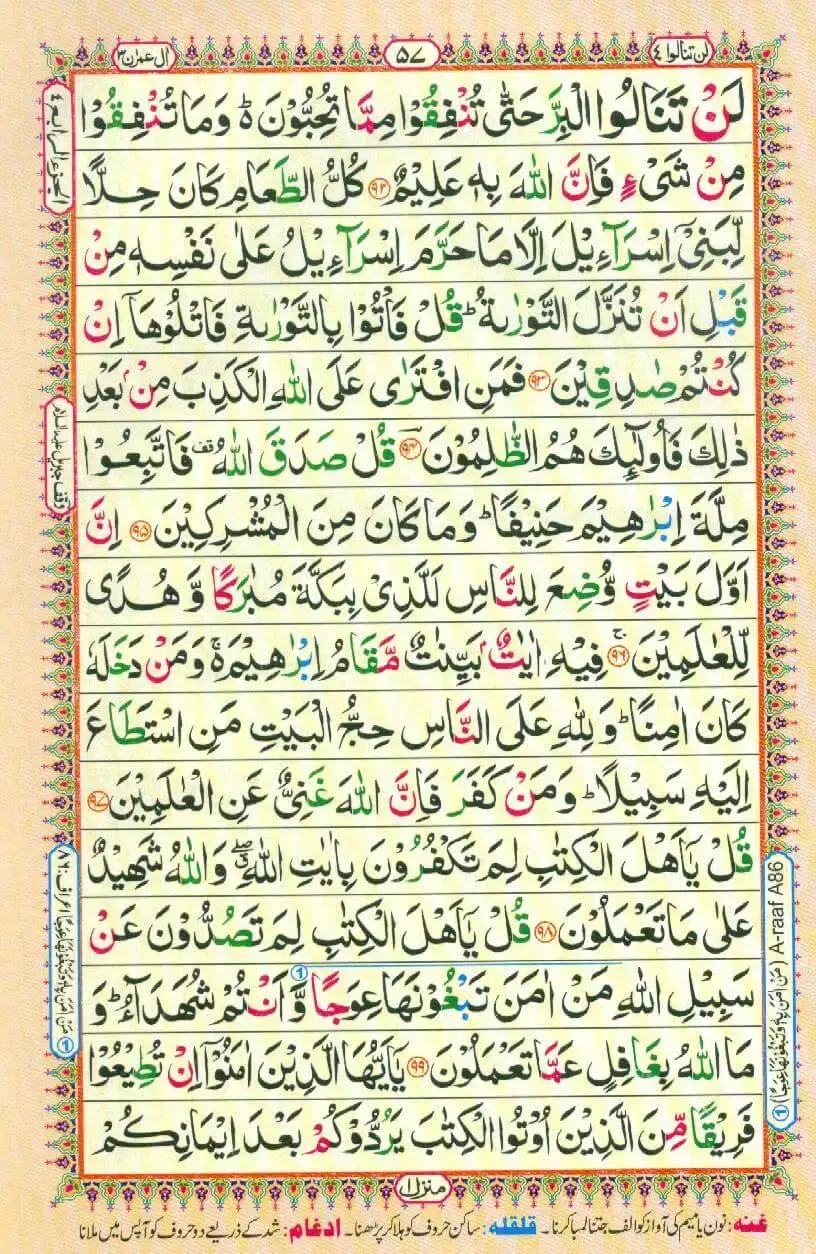 لن تنالوا ٤
٥٧
ال عمرٰن ٣
لَنْ تَنَالُوا الْبِرَّ حَتّٰى تُنْفِقُوْا مِمَّا تُحِبُّوْنَ ؕ۬ وَمَا تُنْفِقُوْا
مِنْ شَىْءٍ فَاِنَّ اللّٰهَ بِهٖ عَلِيْمٌ ﴿۹۲﴾ كُلُّ الطَّعَامِ كَانَ حِلًّا
لِّبَنِىْۤ اِسْرَآءِيْلَ اِلَّا مَا حَرَّمَ اِسْرَآءِيْلُ عَلٰى نَفْسِهٖ مِنْ
قَبْلِ اَنْ تُنَزَّلَ التَّوْرٰىةُ ؕ قُلْ فَاْتُوْا بِالتَّوْرٰىةِ فَاتْلُوْهَاۤ اِنْ
كُنْتُمْ صٰدِقِيْنَ ﴿۹۳﴾ فَمَنِ افْتَرٰى عَلَى اللّٰهِ الْكَذِبَ مِنْۢ بَعْدِ
ذٰلِكَ فَاُولٰٓئِكَ هُمُ الظّٰلِمُوْنَ ﴿۹۴﴾ قُلْ صَدَقَ اللّٰهُ قف فَاتَّبِعُوْا
مِلَّةَ اِبْرٰهِيْمَ حَنِيْفًا ؕ وَمَا كَانَ مِنَ الْمُشْرِكِيْنَ ﴿۹۵﴾ اِنَّ
اَوَّلَ بَيْتٍ وُّضِعَ لِلنَّاسِ لَلَّذِىْ بِبَكَّةَ مُبٰرَكًا وَّهُدًى
لِّلْعٰلَمِيْنَ ۚ﴿۹۶﴾ فِيْهِ اٰيٰتٌۢ بَيِّنٰتٌ مَّقَامُ اِبْرٰهِيْمَ ۬ۚ وَمَنْ دَخَلَهٗ
كَانَ اٰمِنًا ؕ وَلِلّٰهِ عَلَى النَّاسِ حِجُّ الْبَيْتِ مَنِ اسْتَطَاعَ
اِلَيْهِ سَبِيْلًا ؕ وَمَنْ كَفَرَ فَاِنَّ اللّٰهَ غَنِىٌّ عَنِ الْعٰلَمِيْنَ ﴿۹۷﴾
قُلْ يٰۤاَهْلَ الْكِتٰبِ لِمَ تَكْفُرُوْنَ بِاٰيٰتِ اللّٰهِ ۖۗ وَاللّٰهُ شَهِيْدٌ
عَلٰى مَا تَعْمَلُوْنَ ﴿۹۸﴾ قُلْ يٰۤاَهْلَ الْكِتٰبِ لِمَ تَصُدُّوْنَ عَنْ
سَبِيْلِ اللّٰهِ مَنْ اٰمَنَ تَبْغُوْنَهَا عِوَجًا وَّاَنْتُمْ شُهَدَآءُ ؕ وَ
مَا اللّٰهُ بِغَافِلٍ عَمَّا تَعْمَلُوْنَ ﴿۹۹﴾ يٰۤاَيُّهَا الَّذِيْنَ اٰمَنُوْۤا اِنْ تُطِيْعُوْا
فَرِيْقًا مِّنَ الَّذِيْنَ اُوْتُوا الْكِتٰبَ يَرُدُّوْكُمْ بَعْدَ اِيْمَانِكُمْ
الجزء الرابع ٤
وقف جبريل عليه السلام
1 مَنْ اٰمَنَ بِهٖ وَتَبْغُوْنَهَا عِوَجًا اعراف: ۸۶
1 (مَنْ اٰمَنَ بِهٖ وَتَبْغُوْنَهَا عِوَجًا) A-raaf A86
منزل ١
غنه: نون یا میم کی آواز کو الف جتنا لمبا کرنا۔ قلقله: ساکن حروف کو ہلا کر پڑھنا۔ ادغام: شد کے ذریعے دو حروف کو آپس میں ملانا